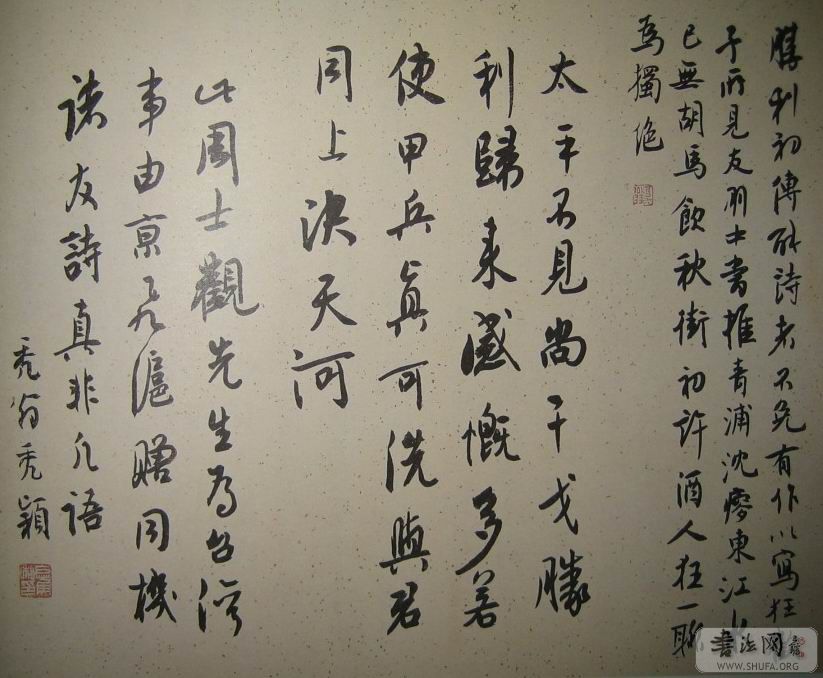 勝利初傳能詩者不免有作以寫狂
予所見友朋中當推青浦沈瘦東江上
已無胡馬飲秋街初許酒人狂一聯
為獨絕
太平不見尚干戈勝
利歸來感慨多若
使甲兵真可洗與君
同上決天河
此周士觀先生為台灣
事由京飛滬贈同機
諸友詩真非凡語
禿翁禿穎
書法网
WWW.SHUFA.ORG